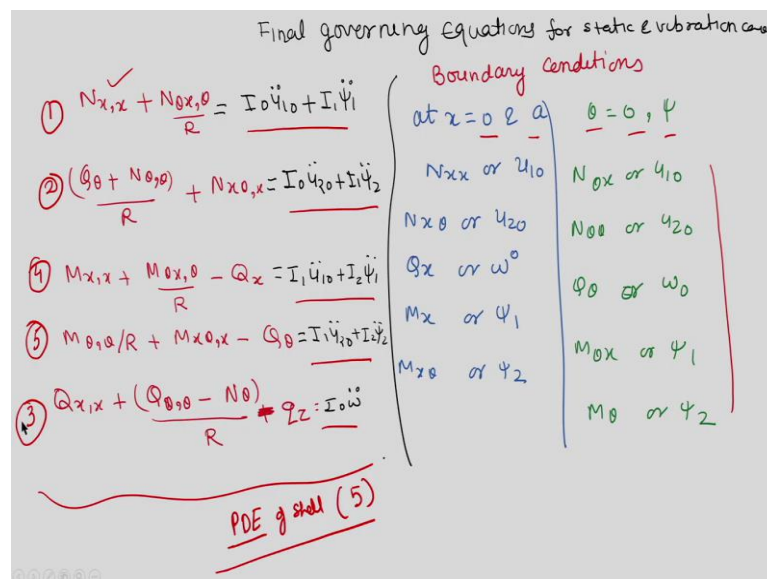 Final governing Equations for static & vibration case
① Nx,x + Nθx,θ/R = I0ü10 + I1ψ̈1
② (Qθ + Nθ,θ)/R + Nxθ,x = I0ü20 + I1ψ̈2
④ Mx,x + Mθx,θ/R - Qx = I1ü10 + I2ψ̈1
⑤ Mθ,θ/R + Mxθ,x - Qθ = I1ü20 + I2ψ̈2
③ Qx,x + (Qθ,θ - Nθ)/R + qz = I0ẅ
PDE of shell (5)
Boundary Conditions
at x = 0 & a
Nxx or u10
Nxθ or u20
Qx or w⁰
Mx or ψ1
Mxθ or ψ2
θ = 0, ψ
Nθx or u10
Nθθ or u20
Qθ or w0
Mθx or ψ1
Mθ or ψ2